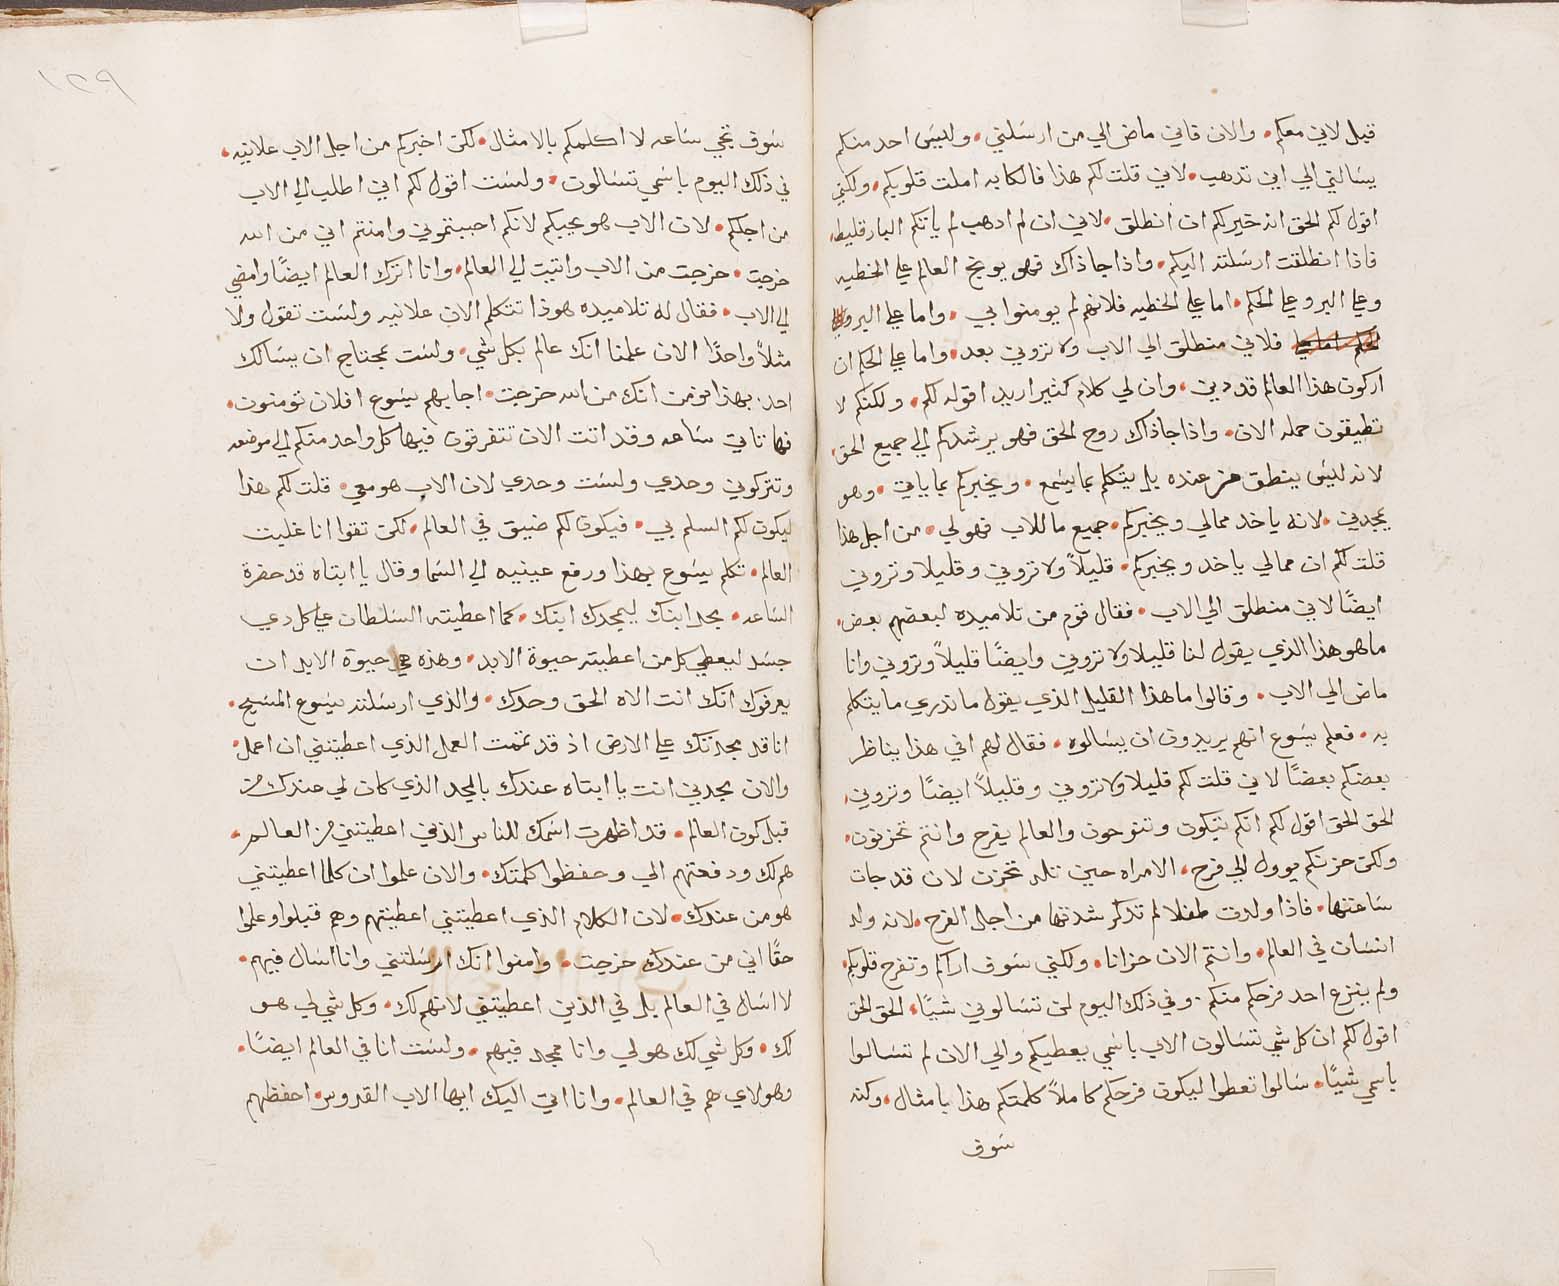 قبل لاني معكم • والان فاني ماض الي من ارسلني • وليس احد منكم
يسالني الي اين تدهب • لاني قلت لكم هذا فالكابه املت قلوبكم • ولكني
اقول لكم الحق انه خير لكم ان انطلق • لاني ان لم ادهب لم ياتكم البارقليط •
فاذا انطلقت ارسلته اليكم • واذا جا ذاك فهو يوبخ العالم علي الخطيه
وعلي البر وعلي الحكم • اما علي الخطيه فلانهم لم يومنوا بي • واما علي البر
فلاني منطلق الي الاب ولا تروني بعد • واما علي الحكم ان
اركون هذا العالم قد دين • وان لي كلام كثير اريد اقوله لكم • ولكنكم لا
تطيقون حمله الان • واذا جا ذاك روح الحق فهو يرشدكم الي جميع الحق •
لانه ليس ينطق من عنده بل يتكلم بما يسمع • ويخبركم بما ياتي • وهو
يمجدني • لانه ياخد ممالي ويخبركم • جميع ما للاب فهو لي • من اجل هذا
قلت لكم ان ممالي ياخد ويخبركم • قليلاً ولا تروني وقليلا وتروني
ايضًا لاني منطلق الي الاب • فقال قوم من تلاميده لبعضهم بعض •
ما هو هذا الذي يقول لنا قليلا ولا تروني وايضًا قليلاً وتروني وانا
ماض الي الاب • وقالوا ما هذا القليل الذي يقول ما ندري ما يتكلم
به • فعلم يسوع انهم يريدون ان يسالوه • فقال لهم اني هذا يناظر
بعضكم بعضًا لاني قلت لكم قليلا ولا تروني وقليلاً ايضًا وتروني •
الحق الحق اقول لكم انكم تبكون وتنوحون والعالم يفرح وانتم تحزنون •
ولكن حزنكم يوول الي فرح • الامراه حين تلد تحزن لان قد جات
ساعتها • فاذا ولدت طفلا لم تدكر شدتها من اجل الفرح • لانه ولد
انسان في العالم • وانتم الان حزانا • ولكني سوف اراكم وتفرح قلوبكم •
ولم ينزع احد فرحكم منكم • وفي ذلك اليوم لن تسالوني شيًا • الحق الحق
اقول لكم ان كل شي تسالون الاب باسمي يعطيكم والي الان لم تسالوا
باسمي شيًا • سالوا تعطوا ليكون فرحكم كاملاً كلمتكم هذا بامثال • ولكنه
سوف
١٢٩
سوف تجي ساعه لا اكلمكم بالامثال • لكن اخبركم من اجل الاب علانيه •
في ذلك اليوم باسمي تسالون • ولست اقول لكم اني اطلب الي الاب
من اجلكم • لان الاب هو يحبكم لانكم احببتموني وامنتم اني من الله
خرجت • خرجت من الاب واتيت الي العالم • وانا اترك العالم ايضًا وامضي
الي الاب • فقال له تلاميده هوذا تتكلم الان علانيه ولست تقول ولا
مثلاً واحدًا الان علمنا انك عالم بكل شي • ولست بمحتاج ان يسالك
احد • بهذا نومن انك من الله خرجت • اجابهم يسوع افلان تومنون •
فها تاتي ساعه وقد اتت الان تتفرقون فيها كل واحد منكم الي موضعه
وتتركوني وحدي ولست وحدي لان الاب هو معي • قلت لكم هذا
ليكون لكم السلم بي • فيكون لكم ضيق في العالم • لكن تقوا انا غلبت
العالم • تكلم يسوع بهذا ورفع عينيه الي السما وقال يا ابتاه قد حضرة
الساعه • مجد ابنك ليمجدك ابنك • كما اعطيته السلطان علي كل دي
جسد ليعطي كل من اعطيته حيوة الابد • وهذه هي حيوة الابد ان
يعرفوك انك انت الاه الحق وحدك • والذي ارسلته يسوع المسيح •
انا قد مجدتك علي الارض اذ قد تممت العمل الذي اعطيتني ان اعمل •
والان مجدني انت يا ابتاه عندك بالمجد الذي كان لي عندك من
قبل كون العالم • قد اظهرت اسمك للناس الذين اعطيتني من العالم •
هم لك ودفعتهم الي وحفظوا كلمتك • والان علموا ان كلما اعطيتني
هو من عندك • لان الكلام الذي اعطيتني اعطيتهم وهم قبلوا وعلموا
حقًا اني من عندك خرجت • وامنوا انك ارسلتني وانا اسال فيهم •
لا اسال في العالم بل في الذين اعطيتني لانهم لك • وكل شي لي هو
لك • وكل شي لك هو لي وانا ممجد فيهم • ولست انا في العالم ايضًا •
وهولاي هم في العالم • وانا اتي اليك ايها الاب القدوس • احفظهم